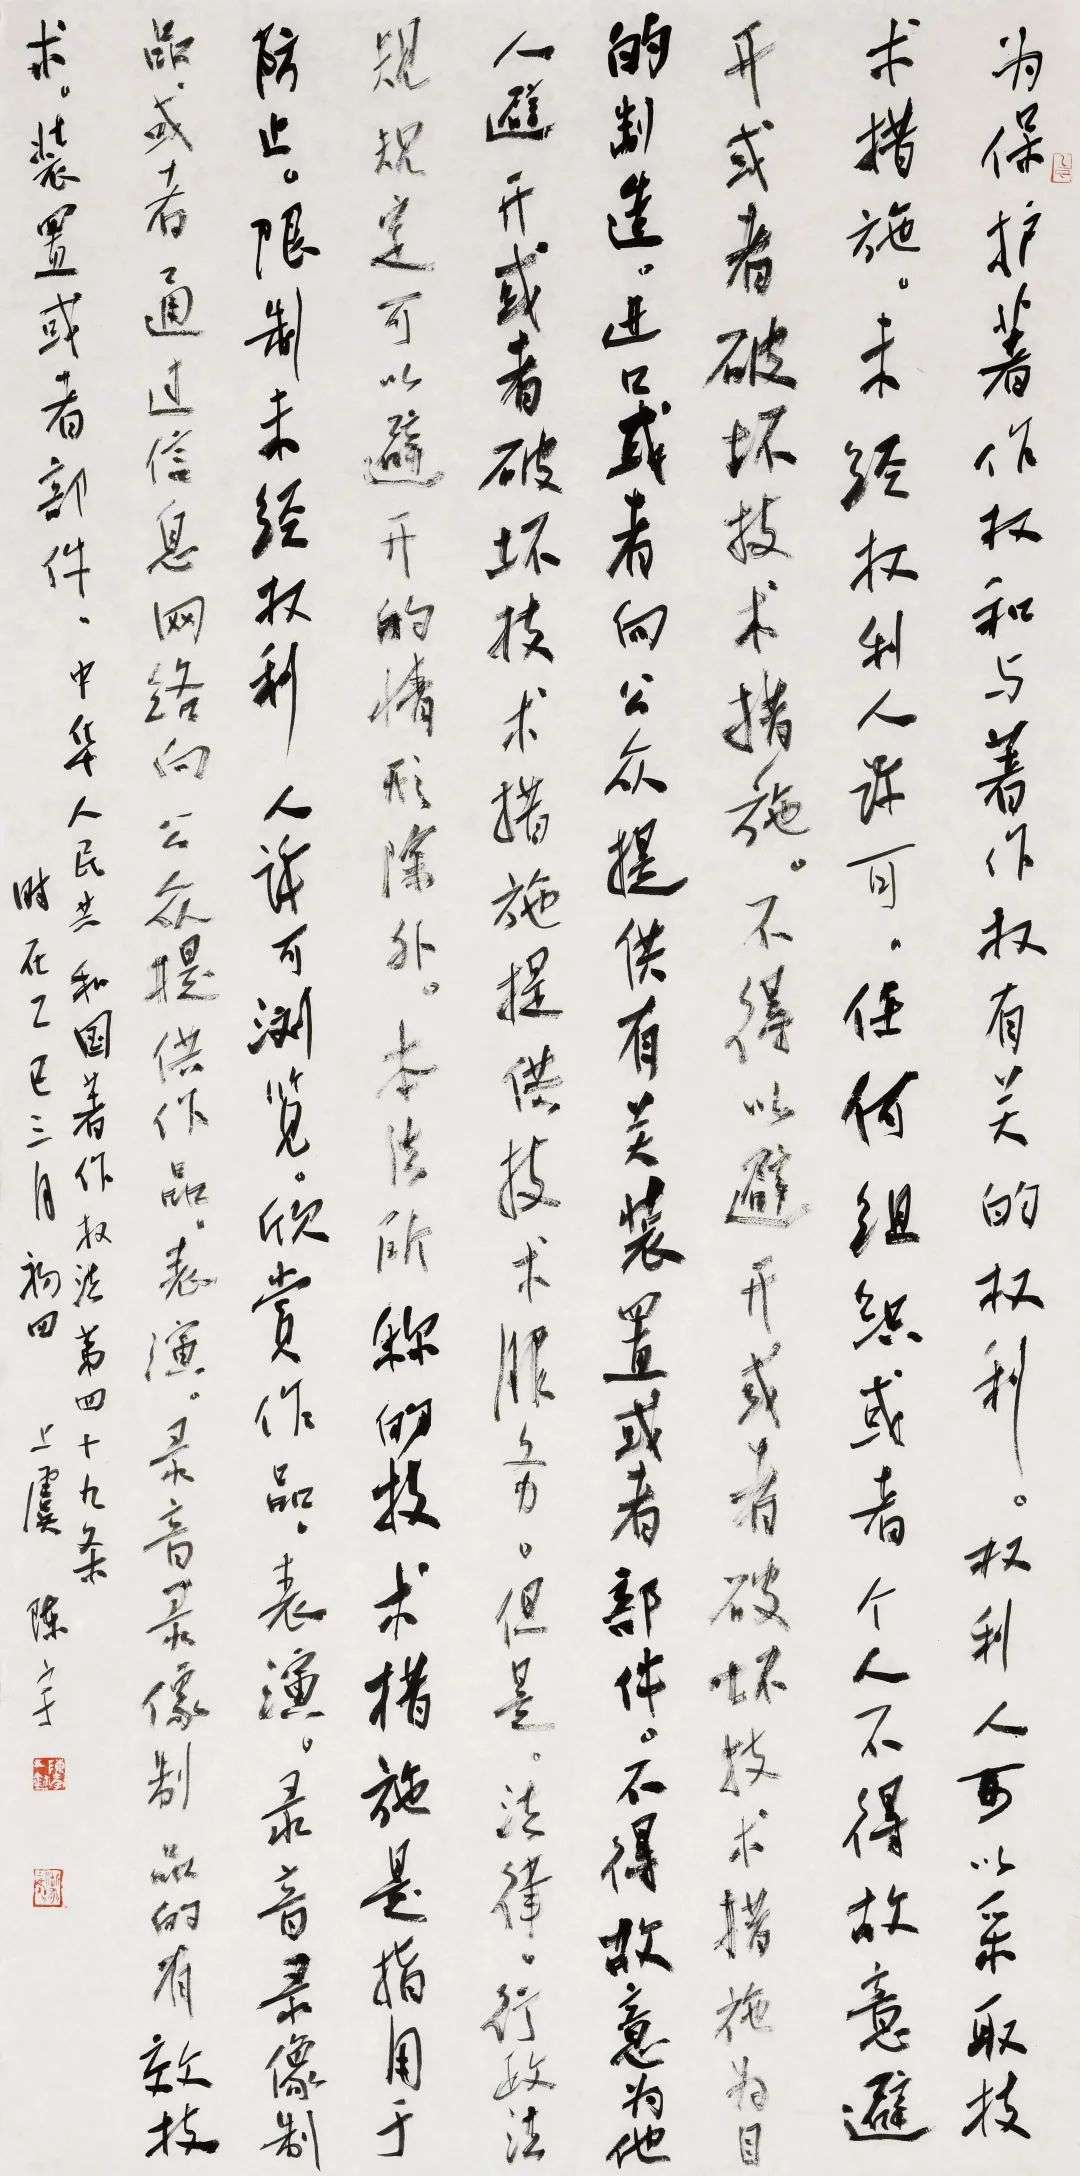 为保护著作权和与著作权有关的权利。权利人可以采取技
术措施。未经权利人许可、任何组织或者个人不得故意避
开或者破坏技术措施。不得以避开或者破坏技术措施为目
的制造。进口或者向公众提供有关装置或者部件。不得故意为他
人避开或者破坏技术措施提供技术服务。但是。法律。行政法
规规定可以避开的情形除外。本法所称的技术措施是指用于
防止。限制未经权利人许可浏览。欣赏作品、表演。录音录像制
品、或者通过信息网络向公众提供作品。表演。录音录像制品的有效技
术。装置或者部件、中华人民共和国著作权法第四十九条
时在乙巳三月初四 上虞 陈宇